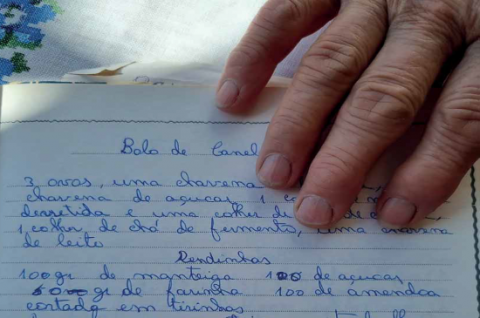 Bolo de Canel
3 ovos, uma chavena
chavena de açucar, 1
derretida e uma colher de de
1 colher de chá de fermento, uma chavena
de leite
Rendinhas
100 gr de manteiga 100 de açucar
gr de farinha 100 de amendoa
cortada em tirinhas